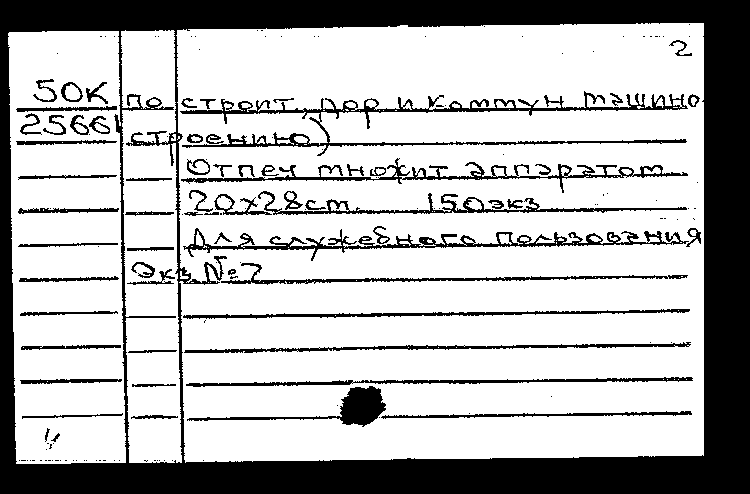 2
50К по строит., дор и коммун машино-
25661 строению)
Отпеч множит аппаратом
20х28см. 150экз
Для служебного пользования
Экз. №7
4